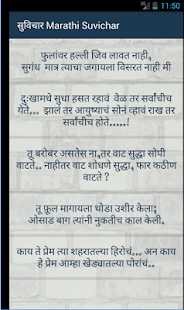 11:50
सुविचार Marathi Suvichar
फुलांवर हल्ली जिव लावत नाही,
सुगंध मात्र त्याचा जगायला विसरत नाही मी
दुःखामधे सुधा हसत रहावं वेळ तर सर्वांचीच
येते... झालं तर आयुष्याचं सोनं व्हावं राख तर
सर्वांचीच होते.....!
तू बरोबर असतेस ना,तर वाट सुद्धा सोपी
वाटते.. नाहीतर वाट शोधणे सुद्धा, फार कठीण
वाटते ?
तू फ़ूल मागायला थोडा उशीर केला;
ओसाड बाग त्यांनी नुकतीच काल केली.
काय ते प्रेम त्या शहरातल्या हिरोचं... अन काय
हे प्रेम आम्हा खेड्यातल्या पोरांचं..